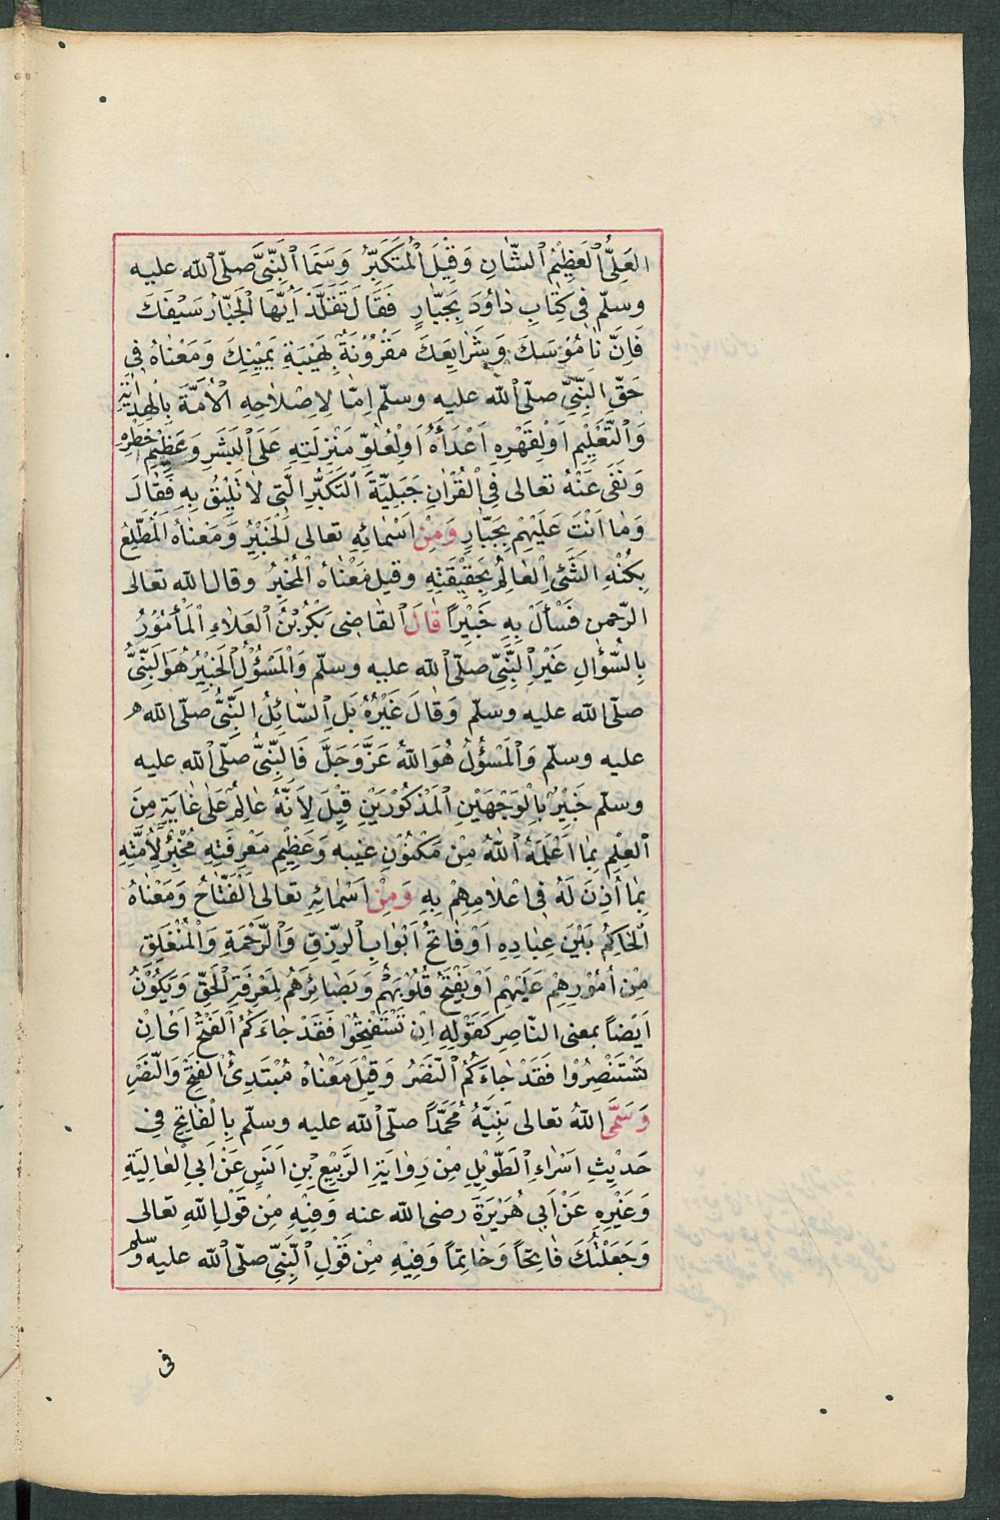 العَلِىُّ الْعَظِيْمُ الشّٰانِ وَقِيْلَ الْمُتَكَبِّرُ وَسَمَّا النَّبِىَّ صلّى الله عليه
وسلّم فِى كِتَابِ دٰاوُدَ بِجَبّٰارٍ فَقَالَ تَقَلَّدْ اَيُّهَا الْجَبّٰارُ سَيْفَكَ
فَاِنَّ نٰامُوْسَكَ وَشَرٰايِعَكَ مَقْرُوْنَةٌ بِهَيْبَةِ يَمِيْنِكَ وَمَعْنٰاهُ فِى
حَقِّ النَّبِىِّ صلّى الله عليه وسلّم اِمّٰا لِاِصْلٰاحِهِ الْاُمَّةَ بِالْهِدٰايَةِ
وَالتَّعْلِيْمِ اَوْلِقَهْرِهِ اَعْدَآءَهُ اَوْلِعُلُوِّ مَنْزِلَتِهِ عَلَى الْبَشَرِ وَعَظِيْمِ خَطَرِهِ
وَنَفٰى عَنْهُ تعالى فِى الْقُرْاٰنِ جَبَلِيَّةَ التَّكَبُّرِ الَّتِى لٰا تَلِيْقُ بِهِ فَقٰالَ
وَمٰا اَنْتَ عَلَيْهِمْ بِجَبّٰارٍ وَمِنْ اَسْمٰائِهِ تعالى الْخَبِيْرُ وَمَعْنٰاهُ الْمُطَّلِعُ
بِكُنْهِ الشَّىْءِ الْعٰالِمُ بِحَقِيْقَتِهِ وقيل مَعْنٰاهُ الْمُخْبِرُ وقال الله تعالى
الرّحمن فَسْأَلْ بِهِ خَبِيْراً قٰالَ الْقٰاضِى بَكْرُ بْنُ الْعَلٰاءِ الْمَأْمُوْرُ
بِالسُّؤٰالِ غَيْرُ النَّبِىِّ صلّى الله عليه وسلّم وَالْمَسْؤُلُ الْخَبِيْرُ هُوَ النَّبِىُّ
صلّى الله عليه وسلّم وَقٰالَ غَيْرُهُ بَلِ السّٰائِلُ النَّبِىُّ صلّى الله
عليه وسلّم وَالْمَسْؤُلُ هُوَ اللهُ عَزَّ وَجَلَّ فَالنَّبِىُّ صلّى الله عليه
وسلّم خَبِيْرٌ بِالْوَجْهَيْنِ الْمَذْكُوْرَيْنِ قِيْلَ لِاَنَّهُ عٰالِمٌ عَلٰى غٰايَةٍ مِنَ
الْعِلْمِ بِمٰا اَعْلَمَهُ اللهُ مِنْ مَكْنُوْنِ غيبه وَعَظِيْمِ مَعْرِفَتِهِ مُخْبِرٌ لِاُمَّتِهِ
بِمٰا اُذِنَ لَهُ فِى اعْلٰامِهِمْ بِهِ وَمِنْ اَسْمٰائِهِ تعالى الْفَتّٰاحُ وَمَعْنٰاهُ
الْحٰاكِمُ بَيْنَ عِبٰادِهِ اَوْ فٰاتِحُ اَبْوٰابِ الرِّزْقِ وَالرَّحْمَةِ وَالْمُنْغَلِقِ
مِنْ اُمُوْرِهِمْ عَلَيْهِمْ اَوْ يَفْتَحُ قُلُوْبَهُمْ وَبَصٰائِرَهُمْ لِمَعْرِفَةِ الْحَقِّ وَيَكُوْنُ
اَيْضاً بمعنى النّاصِرِ كَقَوْلِهِ اِنْ تَسْتَفْتِحُوْا فَقَدْ جٰاءَكُمُ الْفَتْحُ اَىْ اِنْ
تَسْتَنْصِرُوْا فَقَدْ جٰاءَكُمُ النَّصْرُ وَقِيْلَ مَعْنٰاهُ مُبْتَدِئُ الْفَتْحِ وَالنَّصْرِ
وَسَمَّى اللهُ تعالى نَبِيَّهُ مُحَمَّداً صلّى الله عليه وسلّم بِالْفٰاتِحِ فِى
حَدِيْثِ اَسْرٰاءِ الطَّوِيْلِ مِنْ رِوٰايَةِ الرَّبِيْعِ بْنِ اَنَسٍ عَنْ اَبِى الْعٰالِيَةِ
وَغَيْرِهِ عَنْ اَبِى هُرَيْرَةَ رضى الله عنه وَفِيْهِ مِنْ قَوْلِ اللهِ تعالى
وَجَعَلْتُكَ فٰاتِحاً وَخٰاتِماً وَفِيْهِ مِنْ قَوْلِ النَّبِىِّ صلّى الله عليه وسلّم
فى